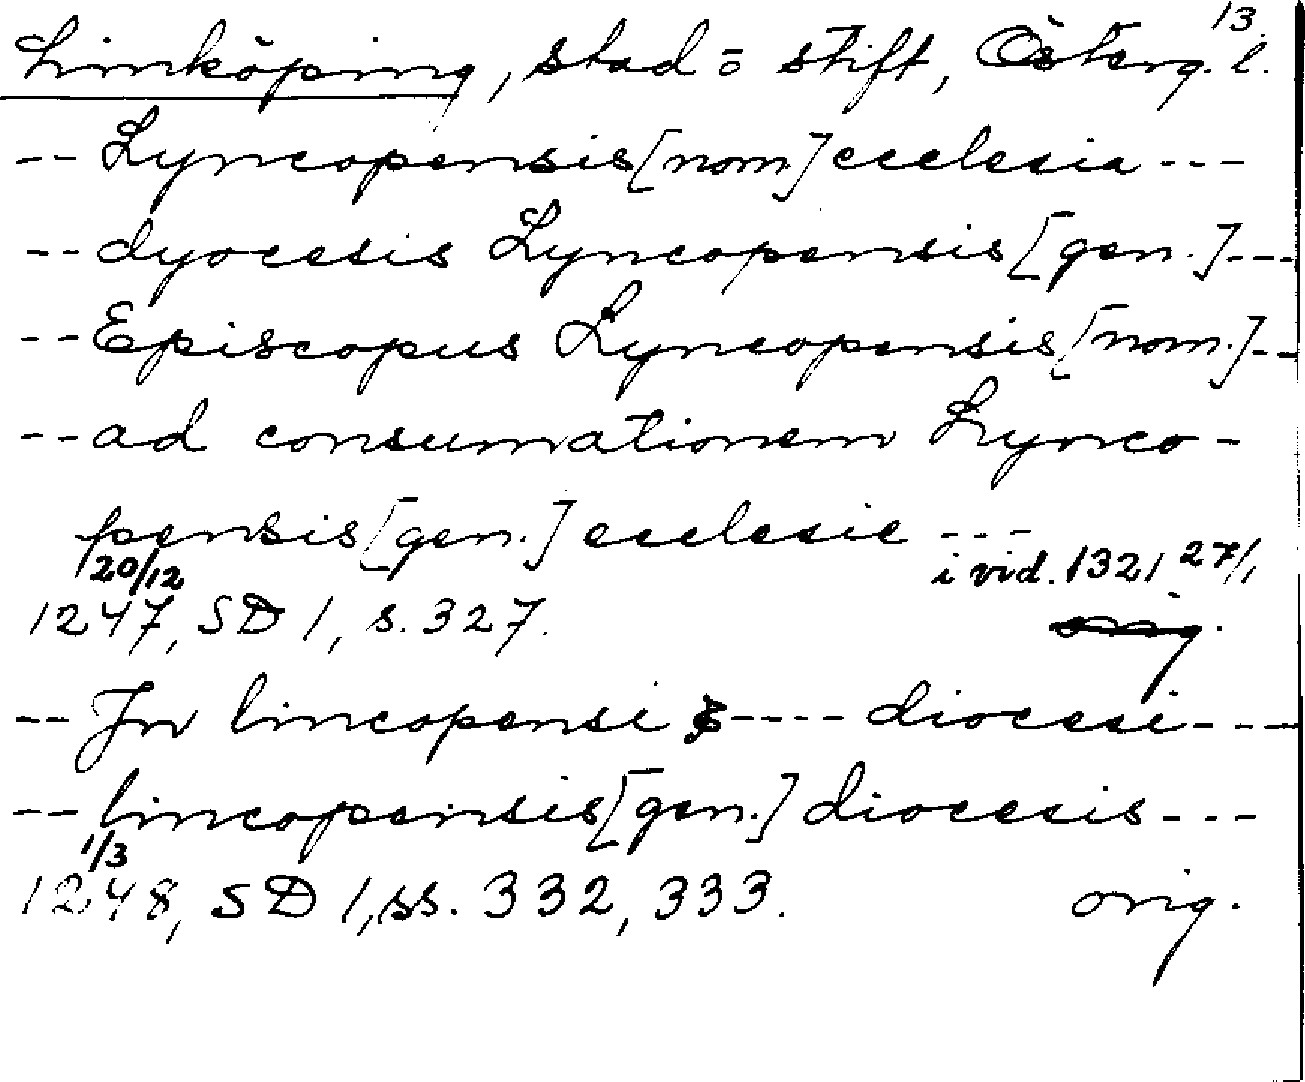 13.
Linköping, stad = stift, Österg.l.
-- Lyncopensis [nom] ecclesia ---
-- dyocesis Lyncopensis [gen.] ---
-- Episcopus Lyncopensis [nom.] --
-- ad consumationem Lynco-
pensis [gen.] ecclesie ---
20/12 i vid. 1321 27/1
1247, SD 1, s. 327. orig.
-- In lincopensi ---- diocesi ---
-- lincopensis [gen.] diocesis ---
1/3
1248, SD 1, ss. 332, 333. orig.